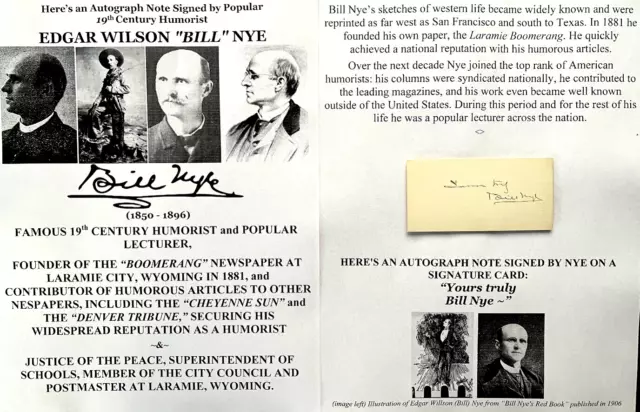 Here's an Autograph Note Signed by Popular
19th Century Humorist
EDGAR WILSON "BILL" NYE
Bill Nye
(1850 - 1896)
FAMOUS 19th CENTURY HUMORIST and POPULAR
LECTURER,
FOUNDER OF THE "BOOMERANG" NEWSPAPER AT
LARAMIE CITY, WYOMING IN 1881, and
CONTRIBUTOR OF HUMOROUS ARTICLES TO OTHER
NESPAPERS, INCLUDING THE "CHEYENNE SUN" and
THE "DENVER TRIBUNE," SECURING HIS
WIDESPREAD REPUTATION AS A HUMORIST
~&~
JUSTICE OF THE PEACE, SUPERINTENDENT OF
SCHOOLS, MEMBER OF THE CITY COUNCIL AND
POSTMASTER AT LARAMIE, WYOMING.
Bill Nye's sketches of western life became widely known and were
reprinted as far west as San Francisco and south to Texas. In 1881 he
founded his own paper, the Laramie Boomerang. He quickly
achieved a national reputation with his humorous articles.
Over the next decade Nye joined the top rank of American
humorists: his columns were syndicated nationally, he contributed to
the leading magazines, and his work even became well known
outside of the United States. During this period and for the rest of his
life he was a popular lecturer across the nation.
Yours truly
Bill Nye
HERE'S AN AUTOGRAPH NOTE SIGNED BY NYE ON A
SIGNATURE CARD:
"Yours truly
Bill Nye ~"
(image left) Illustration of Edgar Willson (Bill) Nye from "Bill Nye's Red Book" published in 1906